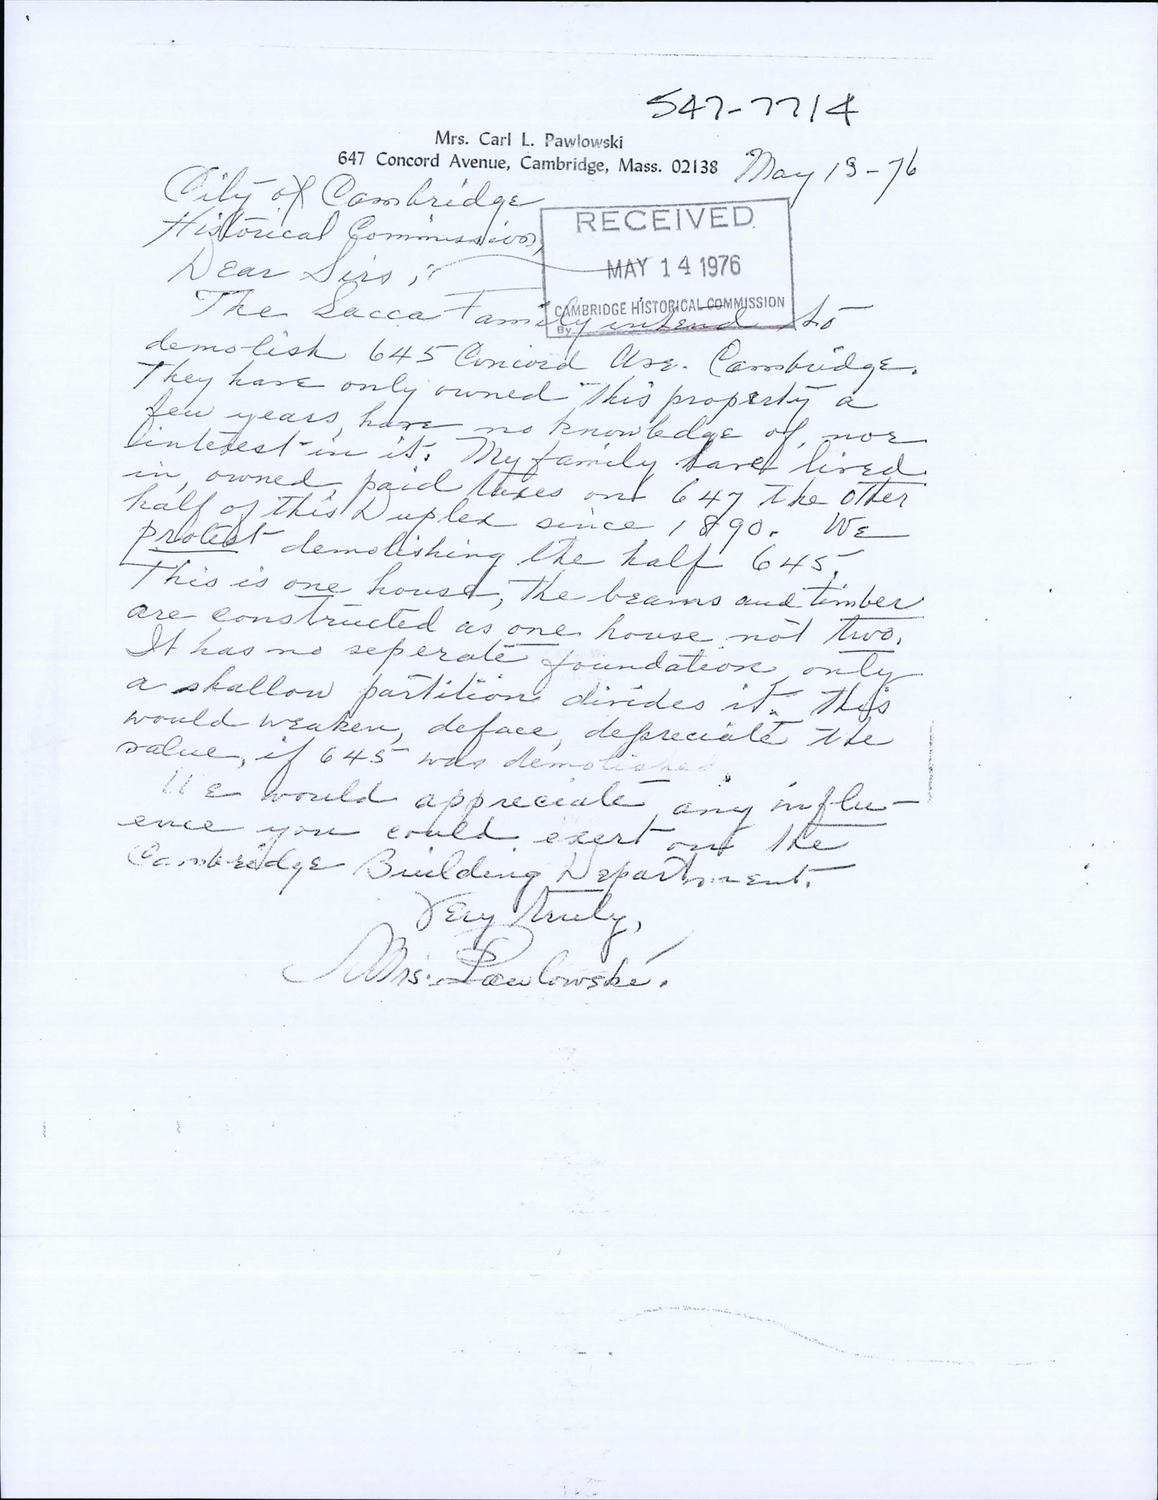 547-7714
Mrs. Carl L. Pawlowski
647 Concord Avenue, Cambridge, Mass. 02138
May 13-76
City of Cambridge
Historical Commission,
RECEIVED
MAY 14 1976
CAMBRIDGE HISTORICAL COMMISSION
By
Dear Sirs;
The Sacca Family intend to
demolish 645 Concord Ave. Cambridge.
They have only owned this property a
few years, have no knowledge of, nor
interest in it. My family have lived
in, owned paid taxes on 647 the other
half of this Duplex since 1890. We
protest demolishing the half 645.
This is one house, the beams and timber
are constructed as one house not two.
It has no seperate foundation only
a shallow partition divides it. This
would weaken, deface, depreciate the
value, if 645 was demolished.
We would appreciate any influ-
ence you could exert on the
Cambridge Building Department.
Very truly,
Mrs. Pawlowski.